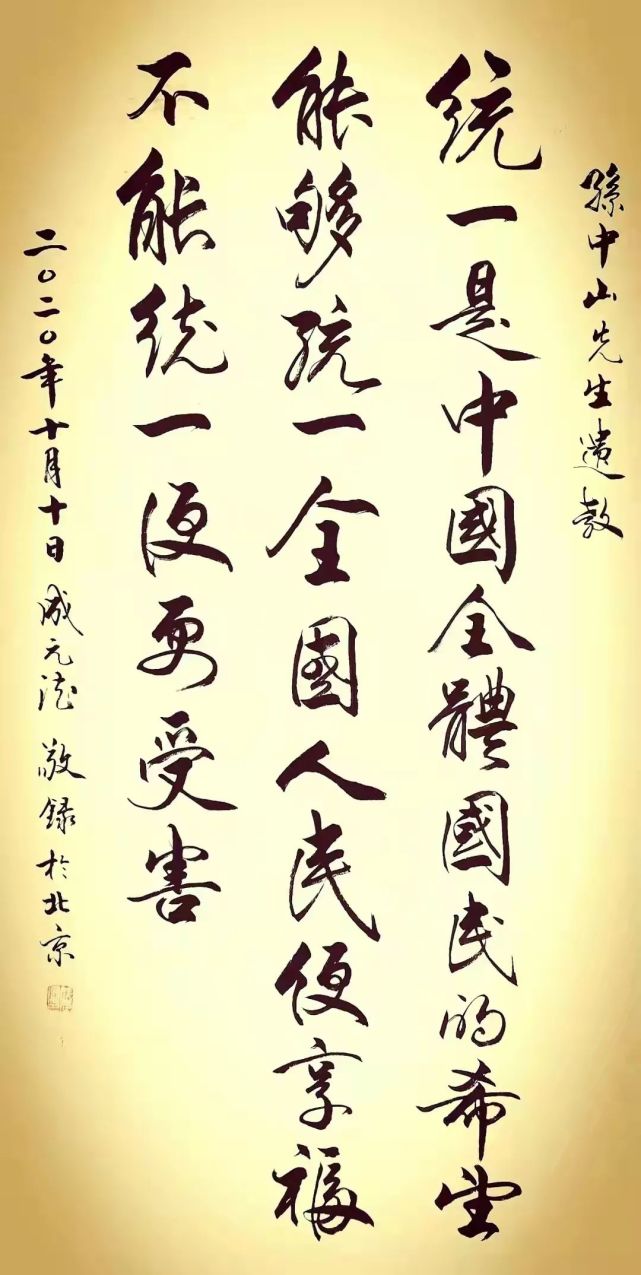 孫中山先生遺教
统一是中國全體國民的希望
能够统一全國人民便享福
不能统一便更受害
二〇二〇年十月十日 成元法 敬録於北京